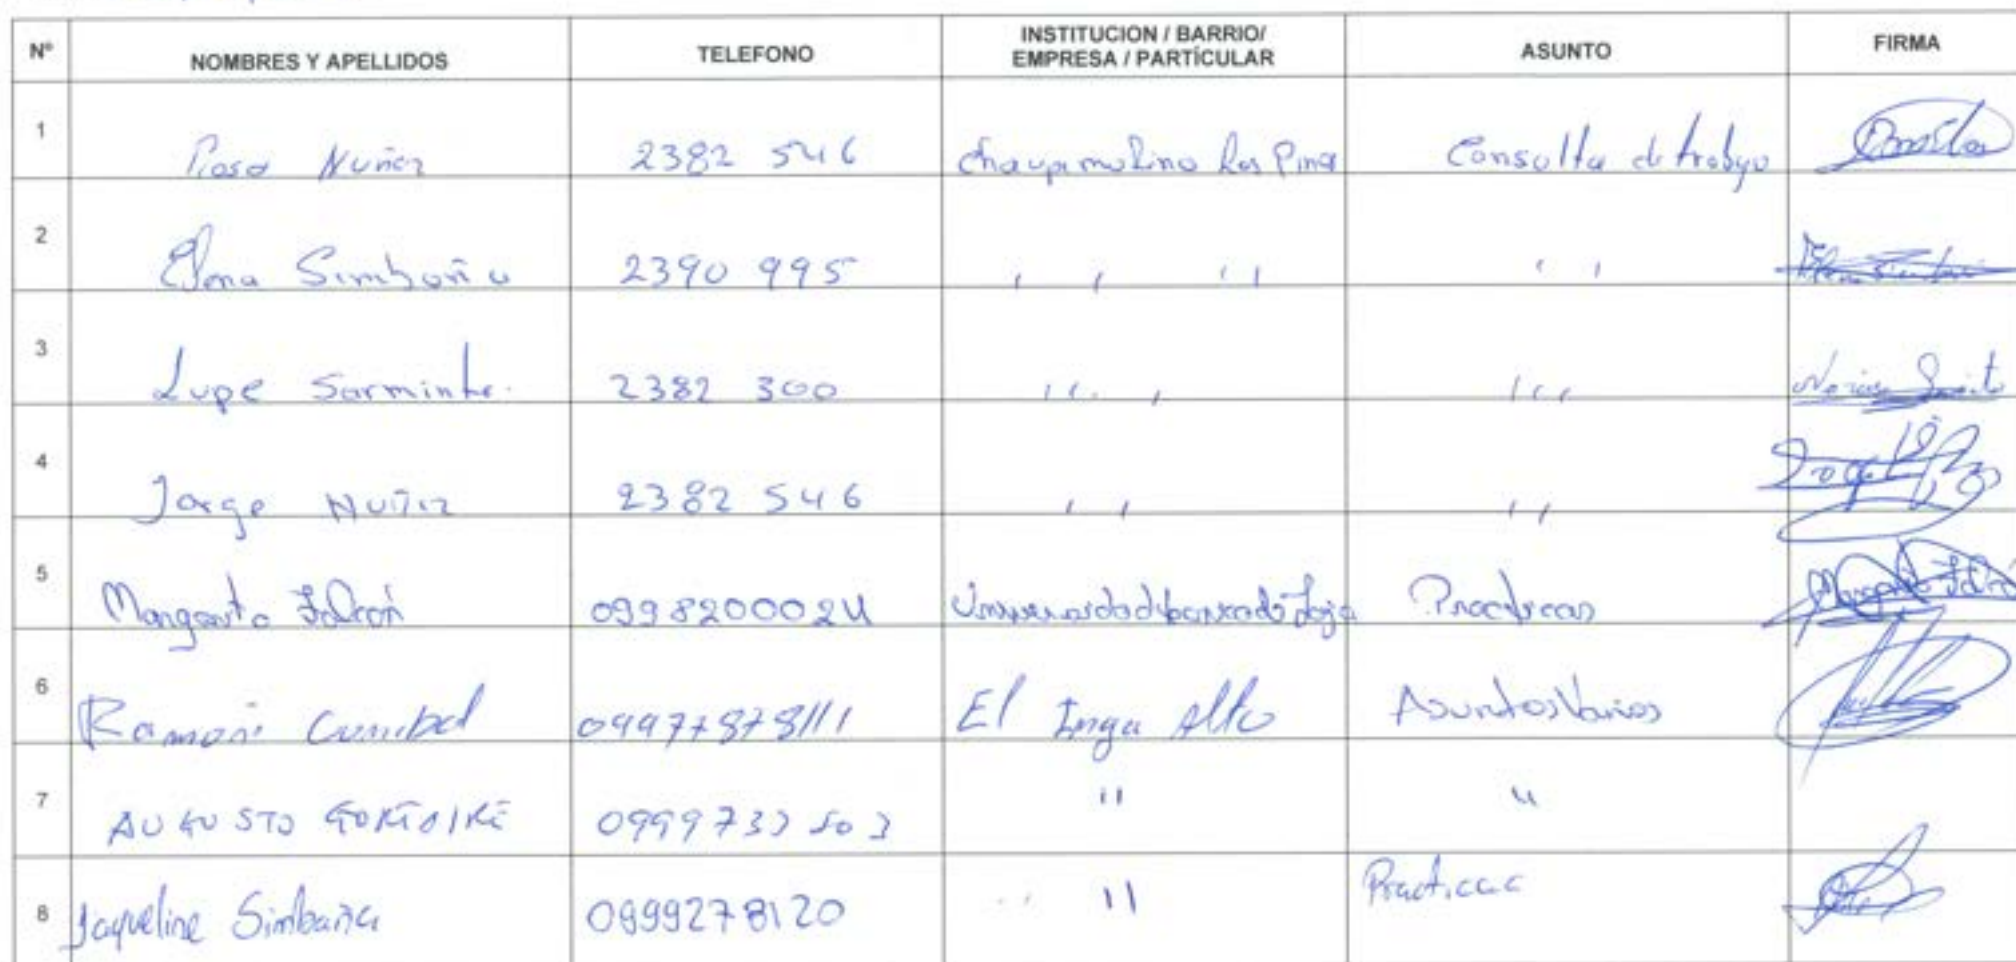 Nº NOMBRES Y APELLIDOS TELEFONO INSTITUCION / BARRIO/ EMPRESA / PARTÍCULAR ASUNTO FIRMA
1 Rosa Nuñez 2382 546 Chaupimolino Los Pinos Consulta de trabajo
2 Elena Simbaña 2390 995 , , ' ' ' '
3 Lupe Sarmiento. 2382 300 ''. , '''
4 Jorge Nuñez 2382 546 ' ' ' '
5 Margarita Falcón 0998200024 Loja Practicas Margarita Falcón
6 Ramón 09977878111 El Inga Alto Asuntos Varios
7 AUGUSTO " "
8 Jaqueline Simbaña 0999278120 " Practicas